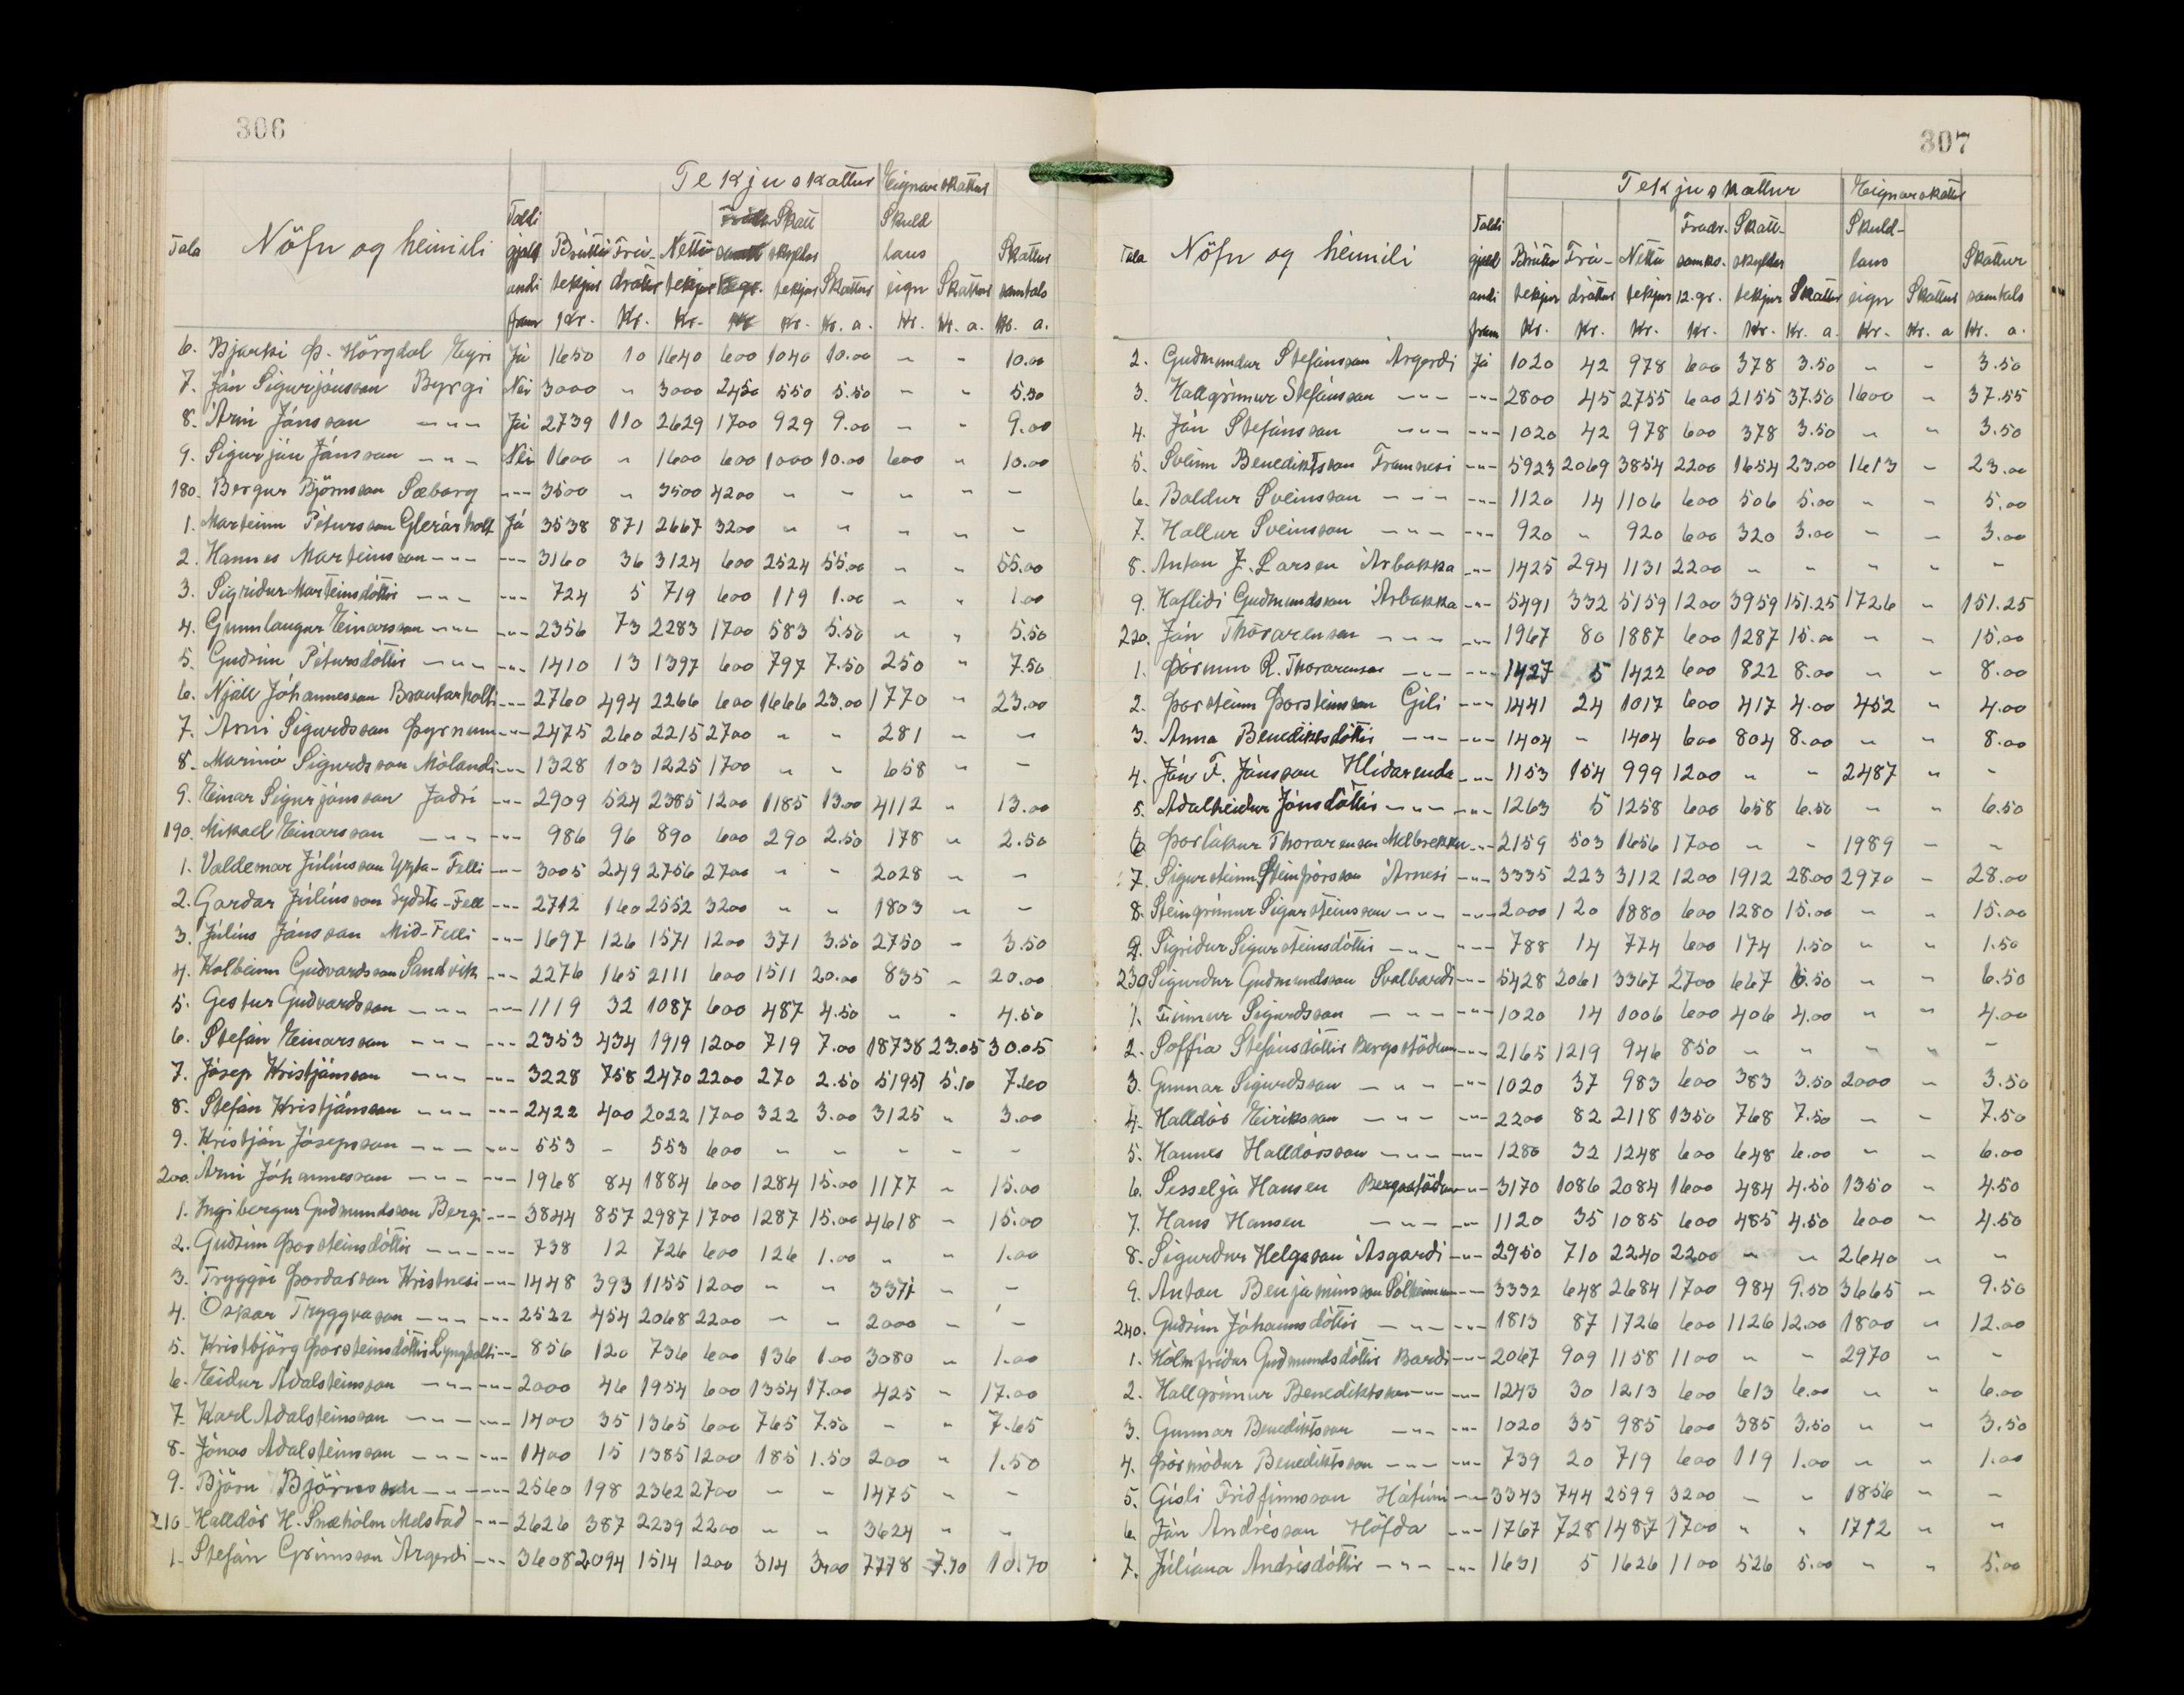 306
Tekjuskattur Eignarskattur
Tala Nöfn og heimili Taldi gjald andi fram Bruttó tekjur Kr. Frá- dráttur Kr. Nettó tekjur Kr. Skatt skyldar tekjur Kr. Skattur Kr. a. Skuld laus eign Kr. Skattur Kr. a. Skattur samtals Kr. a.
6. Bjarki Þ. Hörgdal Eyri Já 1650 10 1640 600 1040 10.00 " " 10.00
7. Ján Sigurjónsson Byrgi Nei 3000 " 3000 2450 550 5.50 " " 5.50
8. Árni Jónsson -"- Já 2739 110 2629 1700 929 9.00 " " 9.00
9. Sigurjón Jónsson -"- Nei 1600 " 1600 600 1000 10.00 600 " 10.00
180. Bergur Björnsson Sæborg -"- 3500 " 3500 4200 " " " " "
1. Marteinn Pétursson Glerárholt Já 3538 871 2667 3200 " " " " "
2. Hannes Marteinsson -"- -"- 3160 36 3124 600 2524 55.00 " " 55.00
3. Sigríður Marteinsdóttir -"- -"- 724 5 719 600 119 1.00 " " 1.00
4. Gunnlaugur Einarsson -"- -"- 2356 73 2283 1700 583 5.50 " " 5.50
5. Guðrún Pétursdóttir -"- -"- 1410 13 1397 600 797 7.50 250 " 7.50
6. Njáll Jóhannesson Brautarholti -"- 2760 494 2266 600 1666 23.00 1770 " 23.00
7. Árni Sigurðsson Þyrnum -"- 2475 260 2215 2700 " " 281 " "
8. Marinó Sigurðsson Mólandi -"- 1328 103 1225 1700 " " 658 " "
9. Einar Sigurjónsson Jaðri -"- 2909 524 2385 1200 1185 13.00 4112 " 13.00
190. Mikael Einarsson -"- -"- 986 96 890 600 290 2.50 178 " 2.50
1. Valdemar Júlíusson Yzta-Felli -"- 3005 249 2756 2700 " " 2028 " "
2. Garðar Júlíusson Syðsta-Fell -"- 2712 160 2552 3200 " " 1803 " "
3. Júlíus Jónsson Mið-Felli -"- 1697 126 1571 1200 371 3.50 2750 " 3.50
4. Kolbeinn Guðvarðsson Sandvík -"- 2276 165 2111 600 1511 20.00 835 " 20.00
5. Gestur Guðvarðsson -"- -"- 1119 32 1087 600 487 4.50 " " 4.50
6. Stefán Einarsson -"- -"- 2353 434 1919 1200 719 7.00 18738 23.05 30.05
7. Jósep Kristjánsson -"- -"- 3228 758 2470 2200 270 2.50 5195 5.10 7.60
8. Stefán Kristjánsson -"- -"- 2422 400 2022 1700 322 3.00 3125 " 3.00
9. Kristján Jósepsson -"- -"- 553 " 553 600 " " " " "
200. Árni Jóhannesson -"- -"- 1968 84 1884 600 1284 15.00 1177 " 15.00
1. Ingibergur Guðmundsson Bergi -"- 3844 857 2987 1700 1287 15.00 4618 " 15.00
2. Guðrún Þorsteinsdóttir -"- -"- 738 12 726 600 126 1.00 " " 1.00
3. Tryggvi Þorðarson Kristnesi -"- 1448 393 1155 1200 " " 3371 " "
4. Óskar Tryggvason -"- -"- 2522 454 2068 2200 " " 2000 " "
5. Kristbjörg Þorsteinsdóttir Lyngholti -"- 856 120 736 600 136 1.00 3080 " 1.00
6. Eiður Aðalsteinsson -"- -"- 2000 46 1954 600 1354 17.00 425 " 17.00
7. Karl Aðalsteinsson -"- -"- 1400 35 1365 600 765 7.50 " " 7.65
8. Jónas Aðalsteinsson -"- -"- 1400 15 1385 1200 185 1.50 200 " 1.50
9. Björn Björnsson -"- -"- 2560 198 2362 2700 " " 1475 " "
210. Halldór H. Snæhólm Melstað -"- 2626 387 2239 2200 " " 3624 " "
1. Stefán Grímsson Árgerði -"- 3608 2094 1514 1200 314 3.00 7778 7.70 10.70
307
Tekjuskattur Eignarskattur
Tala Nöfn og heimili Taldi gjald andi fram Brúttó tekjur Kr. Frá- dráttur Kr. Nettó tekjur Kr. Frádr. samkv. 12.gr. Kr. Skatt- skyldar tekjur Kr. Skattur Kr. a. Skuld- laus eign Kr. Skattur Kr. a Skattur samtals Kr. a.
2. Guðmundur Stefánsson Árgerði Já 1020 42 978 600 378 3.50 " " 3.50
3. Hallgrímur Stefánsson -"- -"- 2800 45 2755 600 2155 37.50 1600 " 37.55
4. Ján Stefánsson -"- -"- 1020 42 978 600 378 3.50 " " 3.50
5. Sveinn Benediktsson Framnesi -"- 5923 2069 3854 2200 1654 23.00 1613 " 23.00
6. Baldur Sveinsson -"- -"- 1120 14 1106 600 506 5.00 " " 5.00
7. Hallur Sveinsson -"- -"- 920 " 920 600 320 3.00 " " 3.00
8. Anton J. Larsen Árbakka -"- 1425 294 1131 2200 " " " " "
9. Hafliði Guðmundsson Árbakka -"- 5491 332 5159 1200 3959 151.25 1726 " 151.25
220. Ján Thorarensen -"- -"- 1967 80 1887 600 1287 15.00 " " 15.00
1. Þórunn R. Thorarensen -"- -"- 1427 5 1422 600 822 8.00 " " 8.00
2. Þorsteinn Þorsteinsson Gili -"- 1441 24 1017 600 417 4.00 452 " 4.00
3. Anna Benediktsdóttir -"- -"- 1404 " 1404 600 804 8.00 " " 8.00
4. Ján F. Jónsson Hlíðarenda -"- 1153 154 999 1200 " " 2487 " "
5. Aðalheiður Jónsdóttir -"- -"- 1263 5 1258 600 658 6.50 " " 6.50
6. Þorlákur Thorarensen Melbrekku -"- 2159 503 1656 1700 " " 1989 " "
7. Sigursteinn Steinþórsson Árnesi -"- 3335 223 3112 1200 1912 28.00 2970 " 28.00
8. Steingrímur Sigursteinsson -"- -"- 2000 120 1880 600 1280 15.00 " " 15.00
9. Sigríður Sigursteinsdóttir -"- -"- 788 14 774 600 174 1.50 " " 1.50
230. Sigurður Guðmundsson Svalbarði -"- 5428 2061 3367 2700 667 6.50 " " 6.50
1. Finnur Sigurðsson -"- -"- 1020 14 1006 600 406 4.00 " " 4.00
2. Soffía Stefánsdóttir Bergsstöðum -"- 2165 1219 946 850 " " " " "
3. Gunnar Sigurðsson -"- -"- 1020 37 983 600 383 3.50 2000 " 3.50
4. Halldór Eiríksson -"- -"- 2200 82 2118 1350 768 7.50 " " 7.50
5. Hannes Halldórsson -"- -"- 1280 32 1248 600 648 6.00 " " 6.00
6. Sesselja Hansen Bergsstöðum -"- 3170 1086 2084 1600 484 4.50 1350 " 4.50
7. Hans Hansen -"- -"- 1120 35 1085 600 485 4.50 600 " 4.50
8. Sigurður Helgason Ásgarði -"- 2950 710 2240 2200 " " 2640 " "
9. Anton Benjamínsson Sólheimum -"- 3332 648 2684 1700 984 9.50 3665 " 9.50
240. Guðrún Jóhannsdóttir -"- -"- 1813 87 1726 600 1126 12.00 1800 " 12.00
1. Hólmfríður Guðmundsdóttir Barði -"- 2067 909 1158 1100 " " 2970 " "
2. Hallgrímur Benediktsson -"- -"- 1243 30 1213 600 613 6.00 " " 6.00
3. Gunnar Benediktsson -"- -"- 1020 35 985 600 385 3.50 " " 3.50
4. Þórmóður Benediktsson -"- -"- 739 20 719 600 119 1.00 " " 1.00
5. Gísli Friðfinnsson Hátúni -"- 3343 744 2599 3200 " " 1856 " "
6. Ján Andrésson Höfða -"- 1767 728 1487 1700 " " 1712 " "
7. Júlíana Andrésdóttir -"- -"- 1631 5 1626 1100 526 5.00 " " 5.00